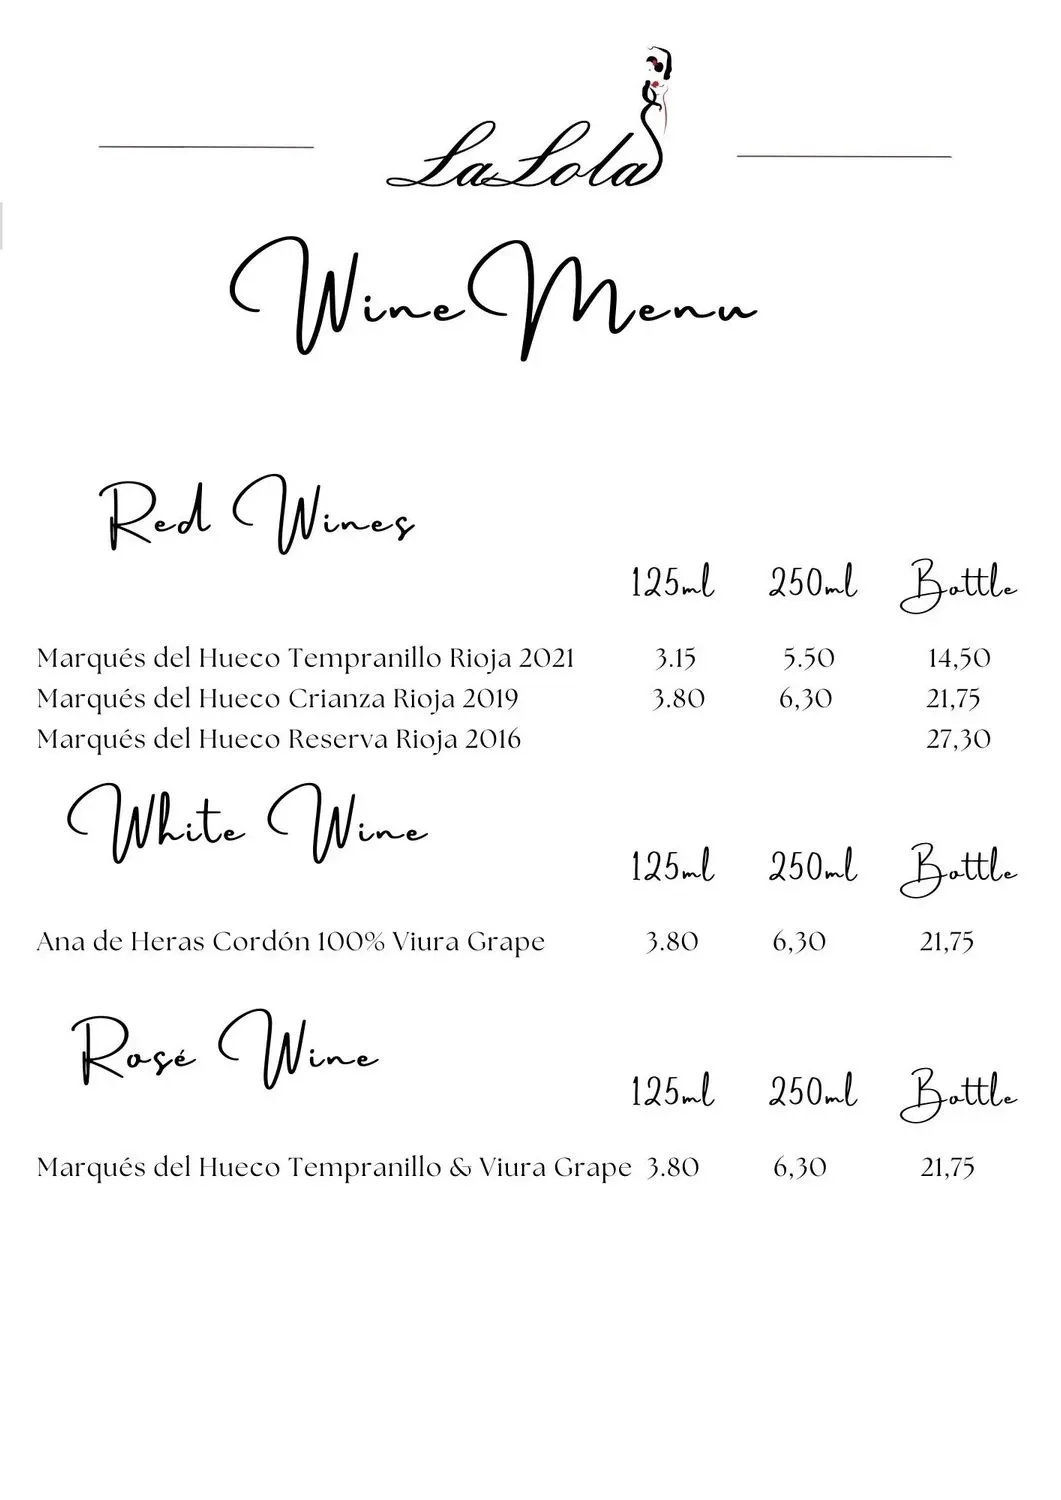 LaLola
Wine Menu
Red Wines
125ml 250ml Bottle
Marqués del Hueco Tempranillo Rioja 2021 3.15 5.50 14,50
Marqués del Hueco Crianza Rioja 2019 3.80 6,30 21,75
Marqués del Hueco Reserva Rioja 2016 27,30
White Wine
125ml 250ml Bottle
Ana de Heras Cordón 100% Viura Grape 3.80 6,30 21,75
Rosé Wine
125ml 250ml Bottle
Marqués del Hueco Tempranillo & Viura Grape 3.80 6,30 21,75